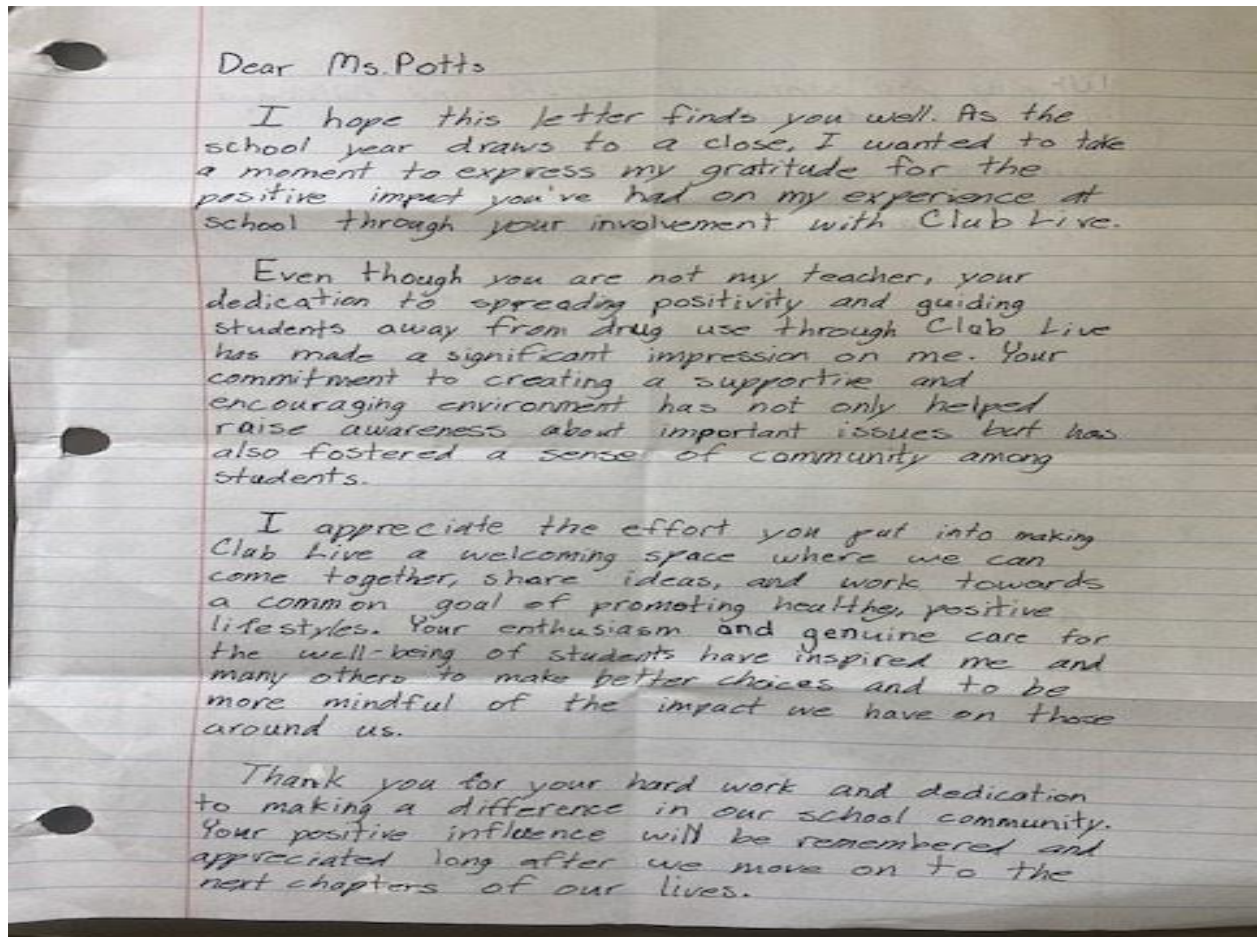 Dear Ms. Potts
I hope this letter finds you well. As the
school year draws to a close, I wanted to take
a moment to express my gratitude for the
positive impact you've had on my experience at
school through your involvement with Club Live.
Even though you are not my teacher, your
dedication to spreading positivity and guiding
students away from drug use through Club Live
has made a significant impression on me. Your
commitment to creating a supportive and
encouraging environment has not only helped
raise awareness about important issues but has
also fostered a sense of community among
students.
I appreciate the effort you put into making
Club Live a welcoming space where we can
come together, share ideas, and work towards
a common goal of promoting healthy, positive
lifestyles. Your enthusiasm and genuine care for
the well-being of students have inspired me and
many others to make better choices and to be
more mindful of the impact we have on those
around us.
Thank you for your hard work and dedication
to making a difference in our school community.
Your positive influence will be remembered and
appreciated long after we move on to the
next chapters of our lives.